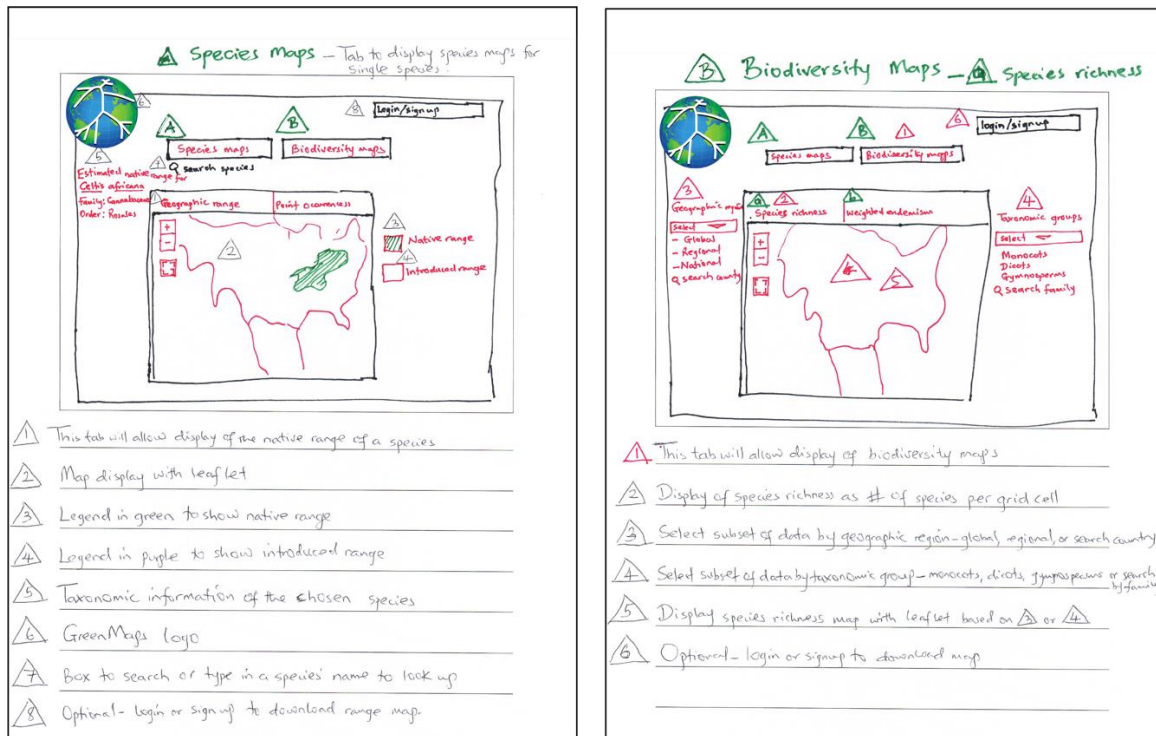 A Species Maps – Tab to display species maps for
single species.
6
8 Login/signup
A B
Species maps Biodiversity maps
5 7 Q search species
Estimated native range for
Celtis africana
Family: Cannabaceae
Order: Rosales
1 Geographic range Point occurrences
+
-
2
3
Native range
4
Introduced range
1 This tab will allow display of the native range of a species
2 Map display with leaflet
3 Legend in green to show native range
4 Legend in purple to show introduced range
5 Taxonomic information of the chosen species
6 GreenMaps logo
7 Box to search or type in a species' name to look up
8 Optional - login or sign up to download range map.
B Biodiversity Maps – a Species richness
6 login/signup
A B 1
Species maps Biodiversity mapps
3
Geographic
Select
- Global
- Regional
- National
Q search county
a 2 b
Species richness weighted endemism
+
-
4 5
4
Taxonomic groups
Select
Monocots
Dicots
Gymnosperms
Q search family
1 This tab will allow display of biodiversity maps
2 Display of species richness as # of species per grid cell
3 Select subset of data by geographic region - global, regional, or search country
4 Select subset of data by taxonomic group - monocots, dicots, gymnosperms or search
by family
5 Display species richness map with leaflet based on 3 or 4
6 Optional - login or signup to download map